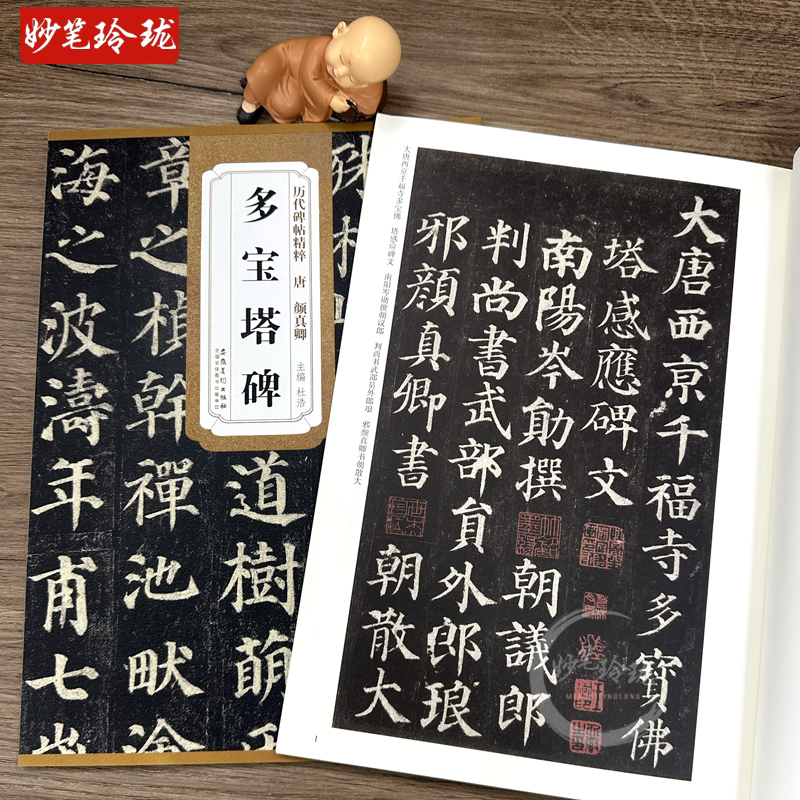 妙笔玲珑
历代碑帖精粹 唐 颜真卿
多宝塔碑
主编 杜浩
安徽美术出版社
全国百佳图书出版单位
殊
道樹萌
章之楨幹禪池畎澮
海之波濤年甫七歲
大唐西京千福寺多宝佛 塔感应碑文 南阳岑勋撰朝议郎 判尚书武部员外郎琅 邪颜真卿书朝散大
大唐西京千福寺多寶佛
塔感應碑文
南陽岑勛撰朝議郎
判尚書武部員外郎琅
邪顏真卿書朝散大
妙笔玲珑
1